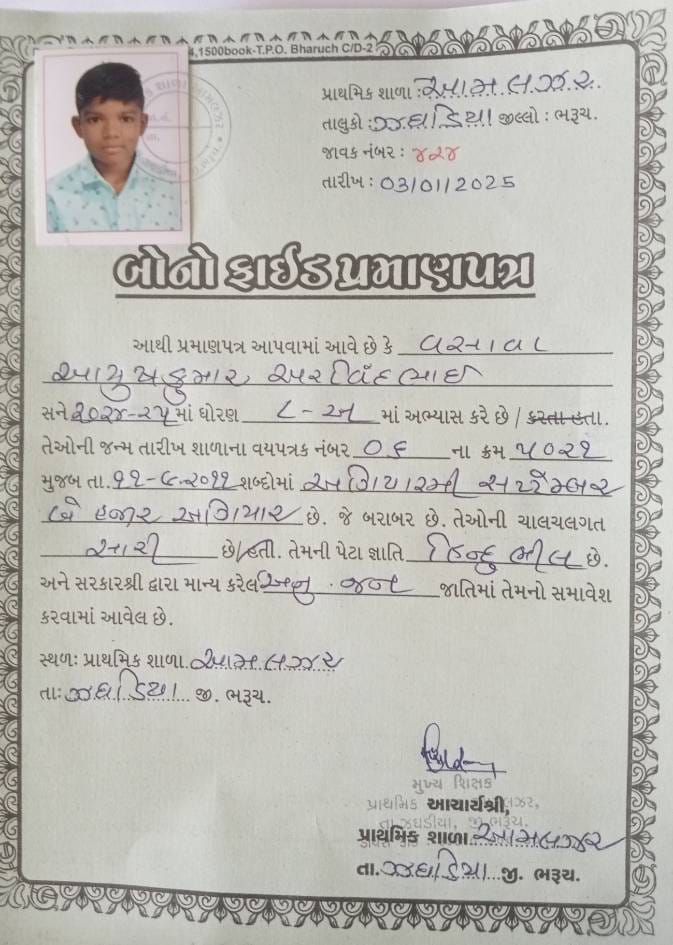 4,1500book-T.P.O. Bharuch C/D-2
પ્રાથમિક શાળા : આમલઝર.
તાલુકો : ઝઘડિયા જીલ્લો : ભરૂચ.
જાવક નંબર : ૪૨૪
તારીખ : 03/01/2025
બોનો ફાઈડ પ્રમાણપત્ર
આથી પ્રમાણપત્ર આપવામાં આવે છે કે વસાવા
આયુષકુમાર અરવિંદભાઈ
સને ૨૦૨૪-૨૫ માં ધોરણ ૮-અ માં અભ્યાસ કરે છે / કરતા હતા.
તેઓની જન્મ તારીખ શાળાના વયપત્રક નંબર ૦૬ ના ક્રમ ૫૦૨૧
મુજબ તા. ૧૧-૯-૨૦૧૧ શબ્દોમાં અગિયારમી સપ્ટેમ્બર
બે હજાર અગિયાર છે. જે બરાબર છે. તેઓની ચાલચલગત
સારી છે/હતી. તેમની પેટા જ્ઞાતિ હિન્દુ ભીલ છે.
અને સરકારશ્રી દ્વારા માન્ય કરેલ અનુ. જન જાતિમાં તેમનો સમાવેશ
કરવામાં આવેલ છે.
સ્થળઃ પ્રાથમિક શાળા. આમલઝર
તાઃ ઝઘડિયા જી. ભરૂચ.
મુખ્ય શિક્ષક
પ્રાથમિક આચાર્યશ્રી,
તા. ઝઘડીયા, જી. ભરૂચ.
પ્રાથમિક શાળા આમલઝર
તા. ઝઘડિયા જી. ભરૂચ.